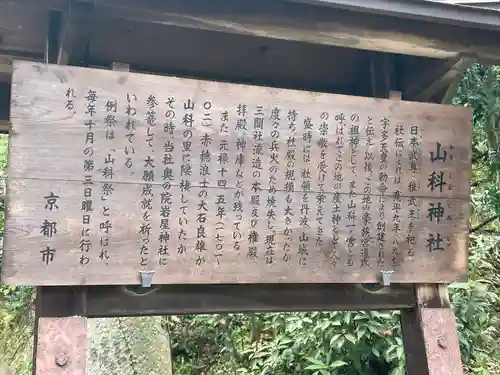 山科神社
日本武尊、稚武王を祀る。
社伝によれば、寛平九年(八九七)
宇多天皇の勅命により創建された
と伝え、以後、この地の豪族宮道氏
の祖神として、また山科一ノ宮とも
呼ばれてこの地の産土神として人々
の崇敬を受けて栄えてきた。
盛時には、社領を丹波、山城に
持ち、社殿の規模も大きかったが
度々の兵火のため焼失し、現社は
三間社流造の本殿及び権殿
拝殿、神庫などが残っている。
また、元禄十四年・十五年(一七〇一・
〇二)赤穂浪士の大石良雄が
山科の里に隠棲していたが
その時、当社奥の院岩屋神社に
参篭して、大願成就を祈ったと
いわれている。
例祭は、「山科祭」と呼ばれ、
毎年十月の第三日曜日に行わ
れる。
京都市